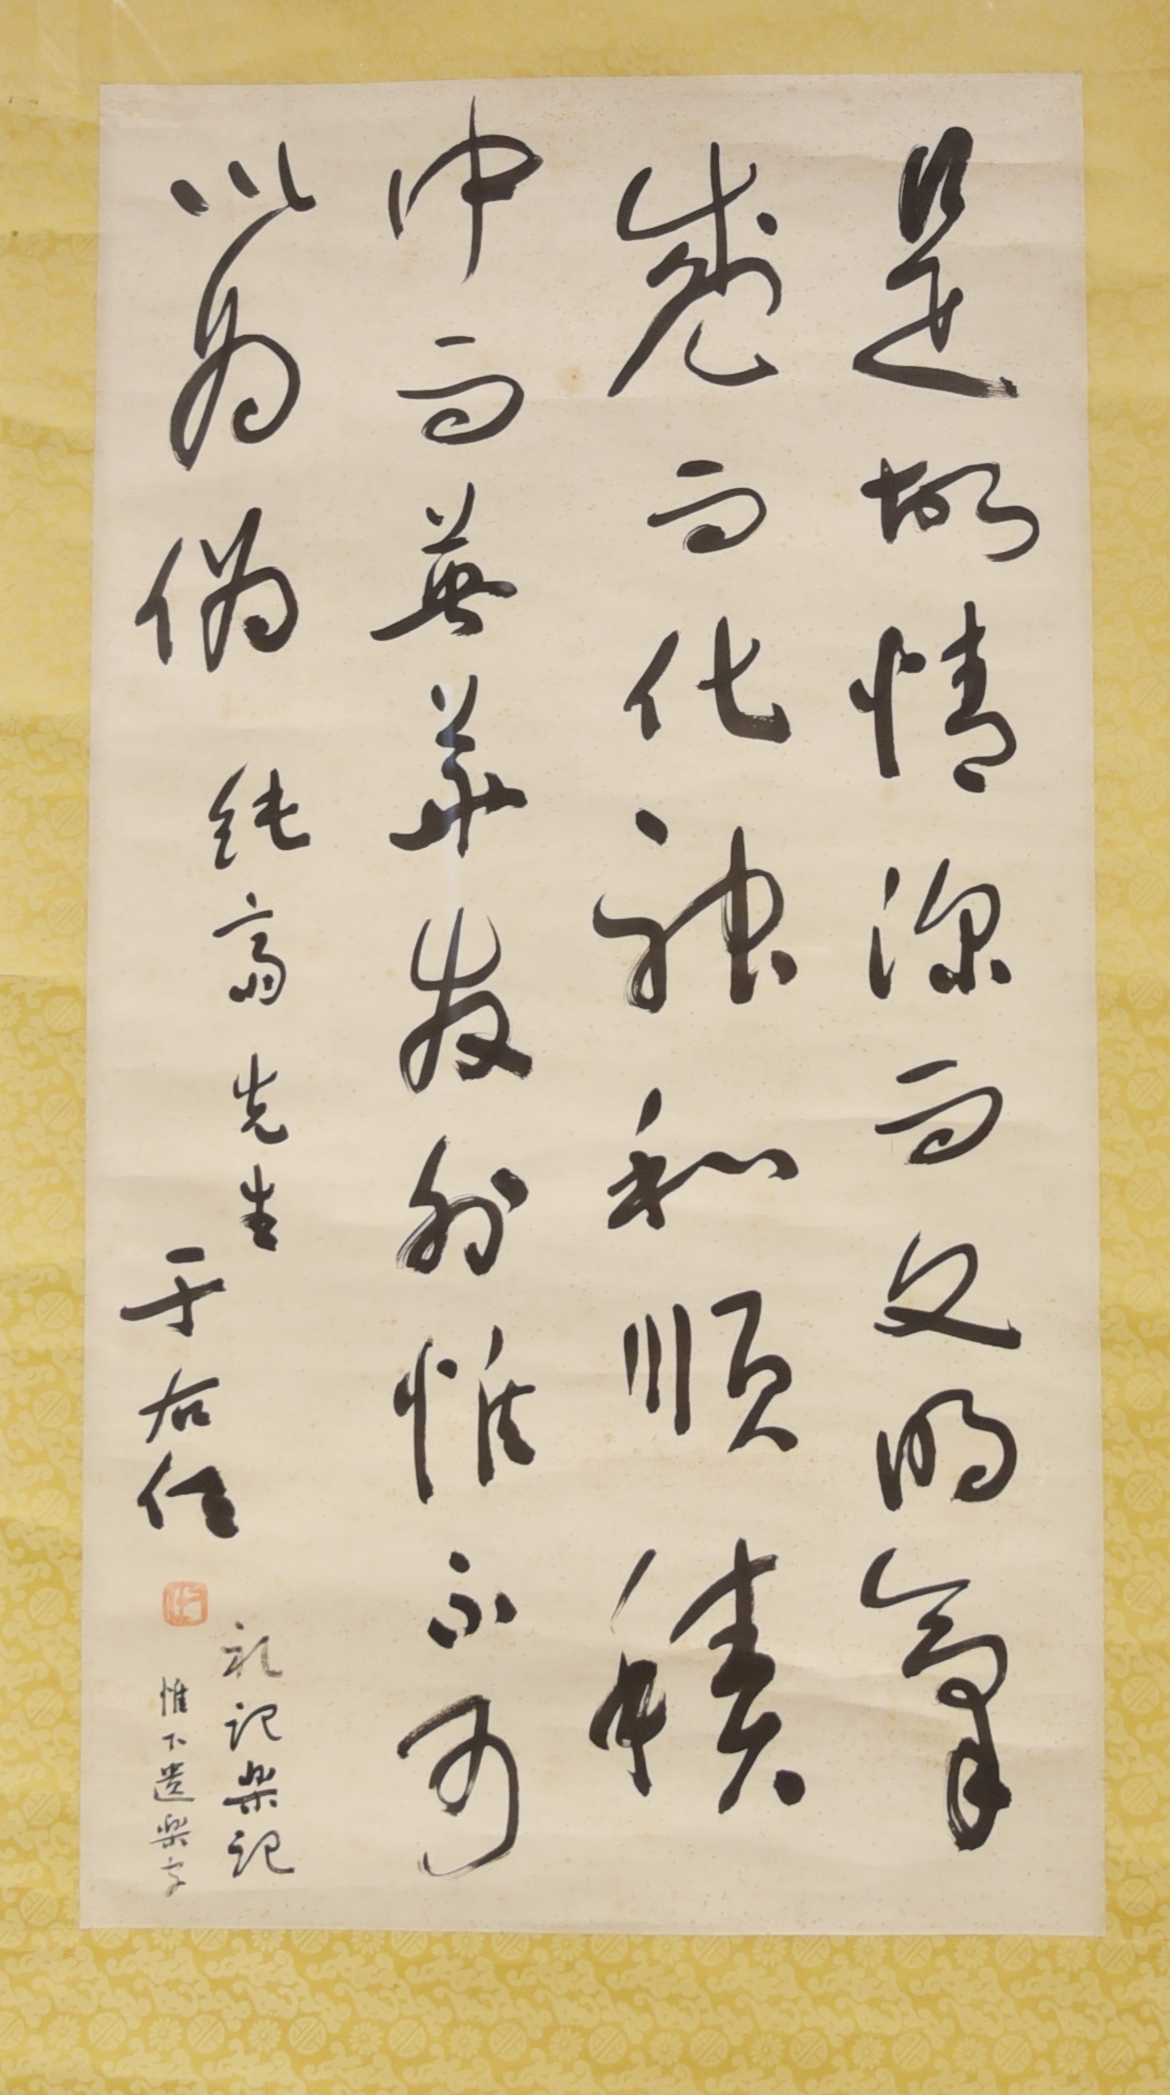 是故情深而文明氣
盛而化神和順積
中而英華發外惟不可
以為偽
純齋先生
于右任
礼記樂記
惟下遺樂字